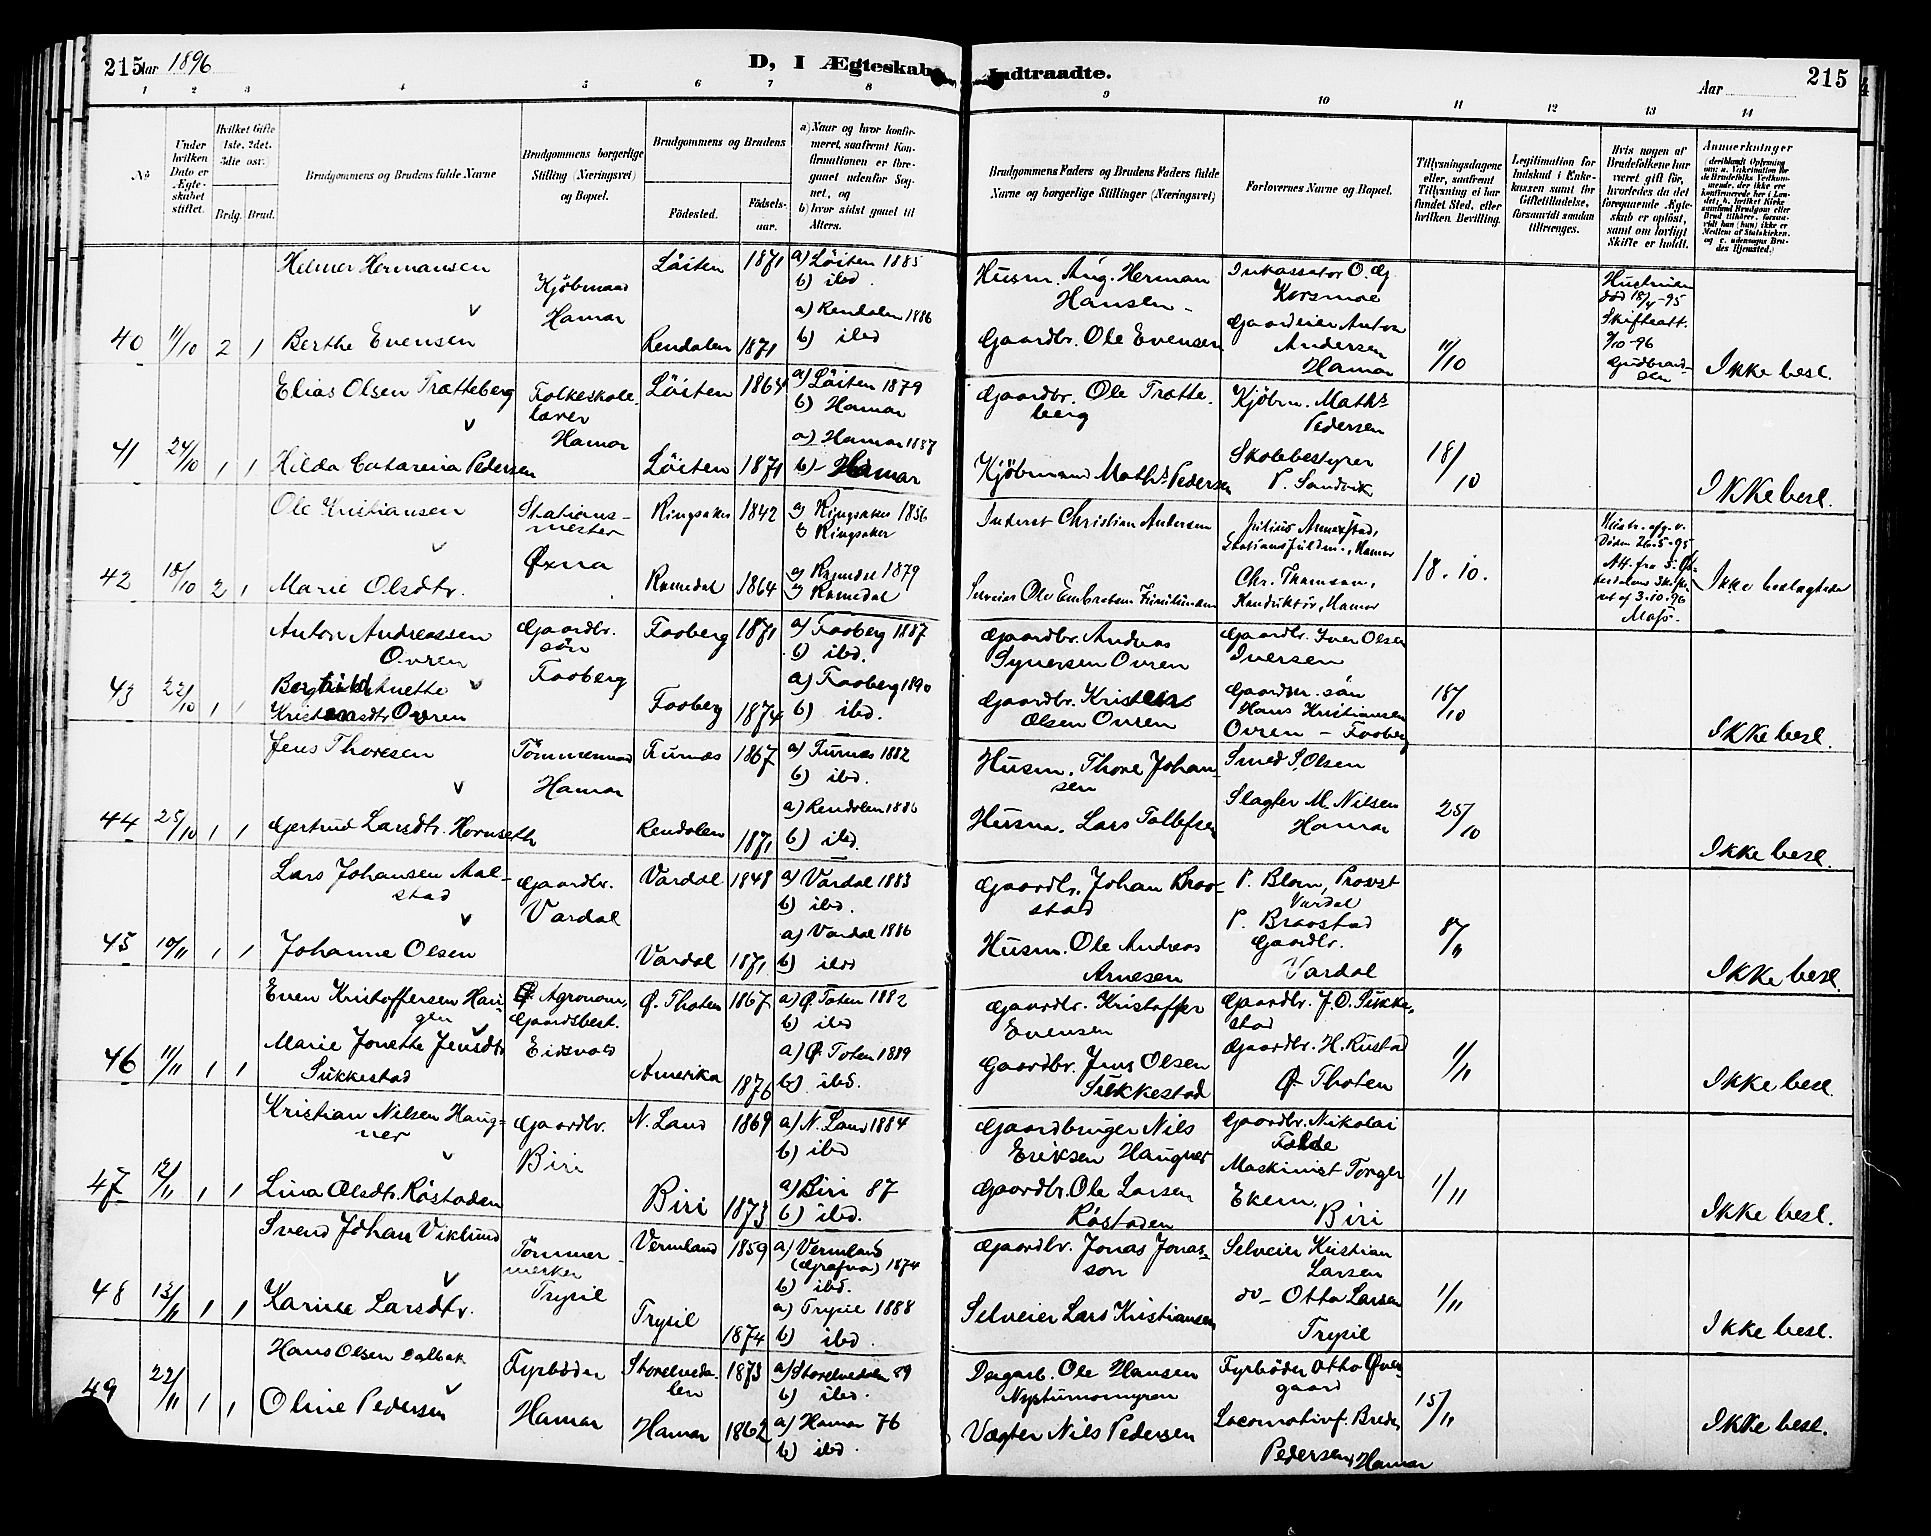 215 Aar 1896
D, I Ægteskab Indtraadte.
Aar 215
1 2 3 4 5 6 7 8 9 10 11 12 13 14
No
Under hvilken Dato er Ægteskabet stiftet.
Hvilket Gifte 1ste, 2det, 3die osv.
Brdg. Brud.
Brudgommens og Brudens fulde Navne
Brudgommens borgerlige Stilling (Næringsvei) og Bopæl.
Brudgommens og Brudens
Fødested.
Fødsels-aar.
a) Naar og hvor konfirmeret, saafremt Konfirmationen er foregaaet udenfor Sognet, og
b) hvor sidst gaaet til Alters.
Brudgommens Faders og Brudens Faders fulde Navne og borgerlige Stillinger (Næringsvei)
Forlovernes Navne og Bopæl.
Tillysningsdagene eller, saafremt Tillysning ei har fundet Sted, efter hvilken Bevilling.
Legitimation for Indskud i Enkekassen samt for Giftetilladelse, forsaavidt saadan tiltrænges.
Hvis nogen af Brudefolkene har været gift før, hvorledes da det foregaaende Ægteskab er opløst, samt om lovligt Skifte er holdt.
Anmærkninger
40 11/10 2 1
Helmer Hermansen
Berthe Evensen
Kjøbmand
Hamar
Löiten 1871
Rendalen 1871
a) Löiten 1885
b) ibd.
a) Rendalen 1886
b) ibd
Husm. Aug. Herman
Hansen
Gaardbr. Ole Evensen
Inkassator O. Gj.
Korsmoe
Gaardeier Anton
Andersen
Hamar
11/10
Hustruen
död 18/4-95
Skifteatt.
9/10-96
Gudbrand-
sen
Ikke besl.
41 24/10 1 1
Elias Olsen Trætteberg
Hilda Catarina Pedersen
Folkeskole
lærer
Hamar
Löiten 1864
Löiten 1871
a) Löiten 1879
b) Hamar
a) Hamar 1887
b) Hamar
Gaardbr. Ole Trætte-
berg
Kjöbmand Maths Pedersen
Kjöbm. Maths
Pedersen
Skolebestyrer
P. Sandvik
18/10
Ikke besl.
42 18/10 2 1
Ole Kristiansen
Marie Olsdtr.
Stations-
mester
Øxna
Ringsaker 1842
Romedal 1864
a) Ringsaker 1856
b) Ringsaker
a) Romedal 1879
b) Romedal
Inderst Christian Andersen
Selveier Ole Embretsen
Julius
Stationsfuldm., Hamar
Chr. Thomsen,
Konduktör, Hamar
18.10.
Hustr. afg. v.
Döden 26-5-95
Att. fra S. Øs-
terdalens Skifte-
ret af 3-10-96
Ikke beslægtede
43 22/10 1 1
Anton Andreassen
Ovren
Bergthild Anette
Kristensdtr. Ovren
Gaardbr.
sön
Faaberg
Faaberg 1871
Faaberg 1874
a) Faaberg 1887
b) ibd.
a) Faaberg 1890
b) ibd.
Gaardbr. Andreas
Syversen Ovren
Gaardbr. Kristens
Olsen Ovren
Gaardbr. Iver Olsen
Iversen
Gaardbr. sön
Hans Kristiansen
Ovren - Faaberg
18/10
Ikke besl.
44 25/10 1 1
Jens Thoresen
Gertrud Larsdtr. Hornseth
Tömmermand
Hamar
Furnæs 1867
Rendalen 1871
a) Furnæs 1882
b) ibd.
a) Rendalen 1886
b) ibd.
Husm. Thore Johan-
sen
Husm. Lars Tollefsen
Smed S. Olsen
Slagter M. Nilsen
Hamar
25/10
Ikke besl.
45 10/11 1 1
Lars Johansen Aal-
stad
Johanne Olsen
Gaardbr.
Vardal
Vardal 1848
Vardal 1871
a) Vardal 1883
b) ibd.
a) Vardal 1886
b) ibd
Gaardbr. Johan Braa-
stad
Husm. Ole Andreas
Arnesen
P. Blom, Provst
Vardal
P. Braastad
Gaardbr.
Vardal
8/11
Ikke besl.
46 11/11 1 1
Even Kristoffersen Hau-
gen
Marie Jonette Jensdtr
Sukkestad
Agronom,
Gaardsbest.
Eidsvold
Ø. Thoten 1867
Amerika 1876
a) Ø. Toten 1882
b) ibd
a) Ø. Toten 1889
b) ibd.
Gaardbr. Kristoffer
Evensen
Gaardbr. Jens Olsen
Sukkestad
Gaardbr. J. O. Sukke-
stad
Gaardbr. H. Rustad
Ø. Thoten
1/11
Ikke besl.
47 12/11 1 1
Kristian Nilsen Haug-
ner
Lina Olsdtr. Röstaden
Gaardbr.
Biri
N. Land 1869
Biri 1873
a) N. Land 1884
b) ibd
a) Biri 87
b) ibd.
Gaardbruger Nils
Eriksen Haugner
Gaardbr. Ole Larsen
Röstaden
Gaardbr. Nikolai
Falde
Maskinist Torger
Ekern,
Biri
1/11
Ikke besl.
48 13/11 1 1
Svend Johan Viklund
Karine Larsdtr.
Tömmer-
merker
Trysil
Vermland 1859
Trysil 1874
a) Vermland
(Grafva) 1874
b) ibd.
a) Trysil 1888
b) ibd.
Gaardbr. Jonas Jonas-
son
Selveier Lars Kristiansen
Selveier Kristian
Larsen
do- Otto Larsen
Trysil
1/11
Ikke besl.
49 22/11 1 1
Hans Olsen Dalbak
Oline Pedersen
Fyrböder
Hamar
Storelveda-
len 1873
Hamar 1862
a) Storelvedalen 89
b) ibd.
a) Hamar 76
b) ibd.
Dagarb. Ole Hansen
Vægter Nils Pedersen
Fyrböder Otto Øver-
gaard
Locomotivf. Brede
Pedersen, Hamar
15/11
Ikke besl.